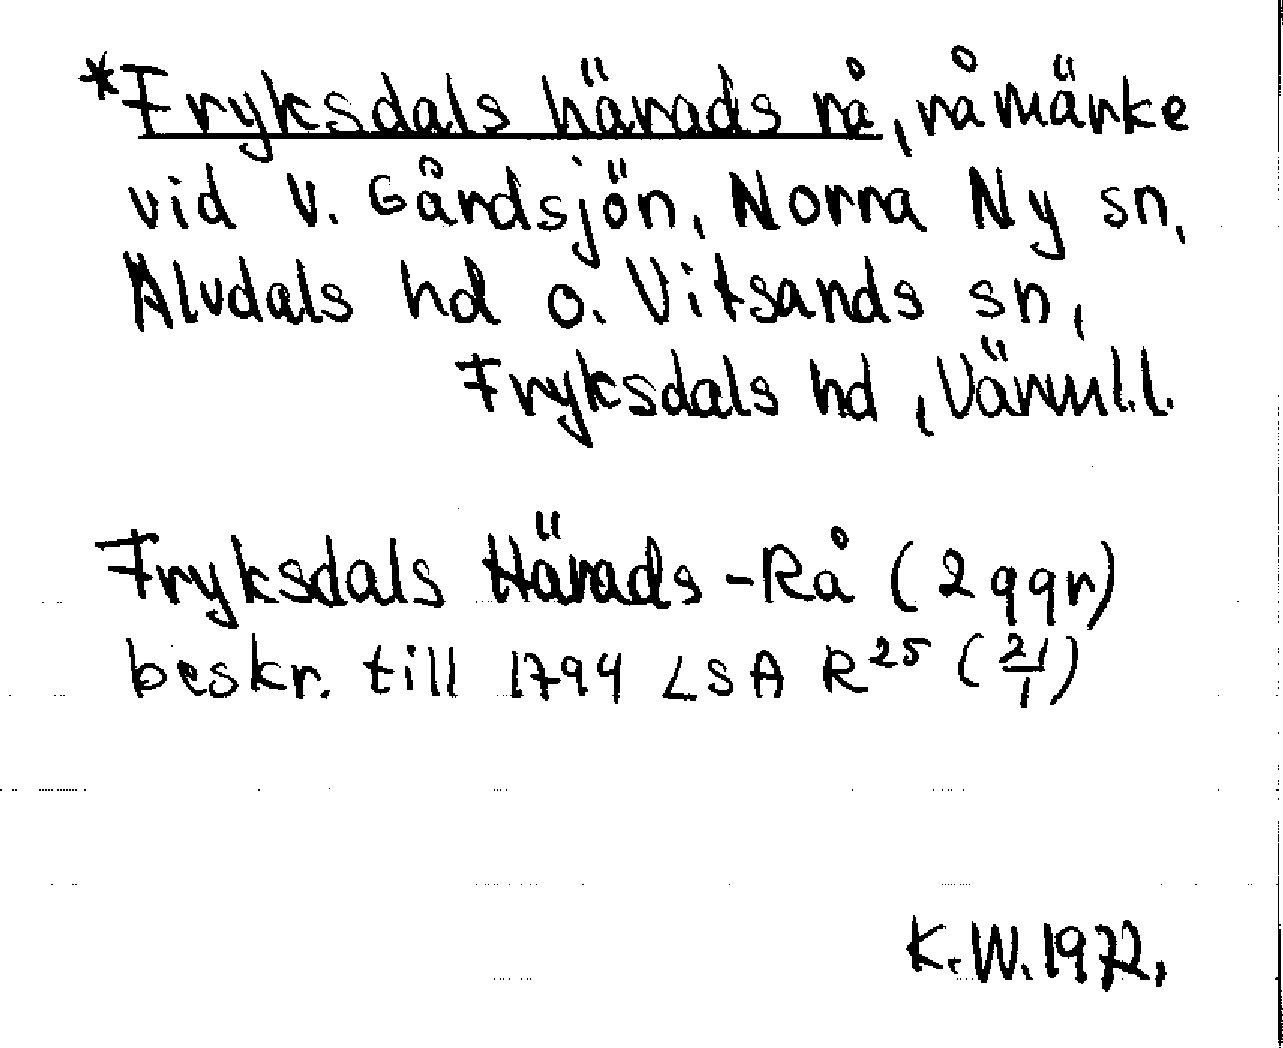 *Fryksdals härads rå, råmärke
vid V. Gårdsjön, Norra Ny sn,
Älvdals hd o. Vitsands sn,
Fryksdals hd, Värml.l.
Fryksdals Härads-Rå (2 ggr)
beskr. till 1794 LSA R25 (21/1)
K.W.1972.